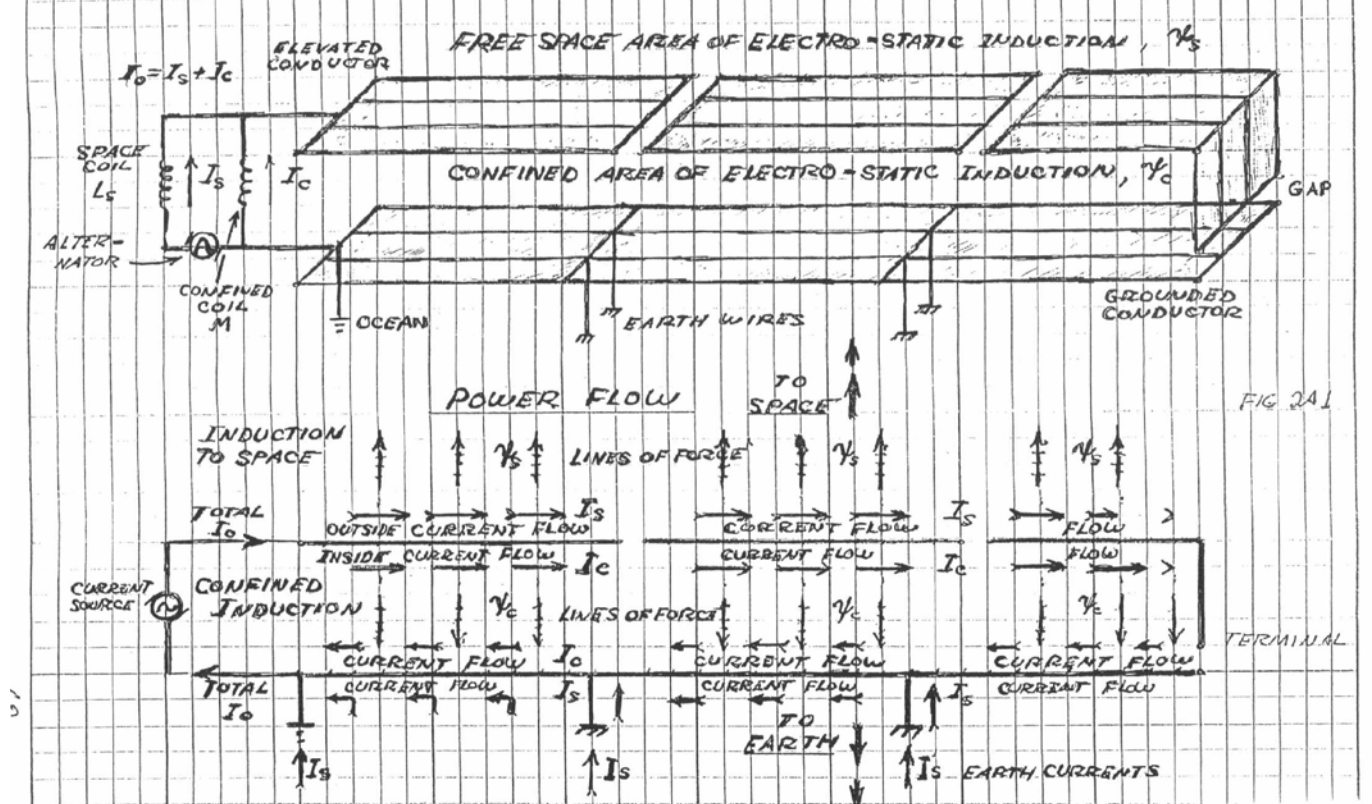 FREE SPACE AREA OF ELECTRO-STATIC INDUCTION, ψs
ELEVATED
CONDUCTOR
Io=Is+Ic
SPACE
COIL
Ls
Is
Ic
CONFINED AREA OF ELECTRO-STATIC INDUCTION, ψc
GAP
ALTER-
NATOR
A
CONFINED
COIL
M
OCEAN
EARTH WIRES
GROUNDED
CONDUCTOR
POWER FLOW
TO
SPACE
FIG 2A1
INDUCTION
TO SPACE
ψs
LINES OF FORCE
ψs
ψs
TOTAL
Io
Is
Is
OUTSIDE CURRENT FLOW
CURRENT FLOW
FLOW
INSIDE CURRENT FLOW
CURRENT FLOW
FLOW
Ic
Ic
CURRENT
SOURCE
CONFINED
INDUCTION
ψc
LINES OF FORCE
ψc
ψc
TERMINAL
CURRENT FLOW
Ic
CURRENT FLOW
CURRENT FLOW
TOTAL
Io
CURRENT FLOW
Is
CURRENT FLOW
Is
CURRENT FLOW
TO
EARTH
Is
Is
Is
EARTH CURRENTS